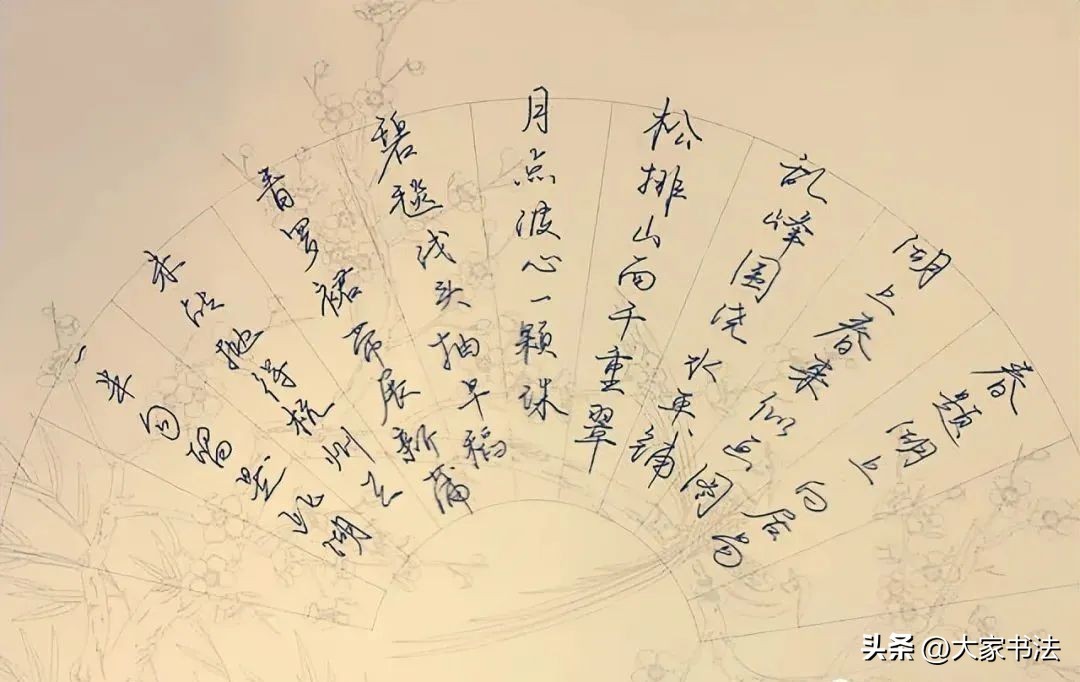 春题湖上 白居易
湖上春来似画图
乱峰围绕水平铺
松排山面千重翠
月点波心一颗珠
碧毯线头抽早稻
青罗裙带展新蒲
未能抛得杭州去
一半勾留是此湖
头条 @大家书法